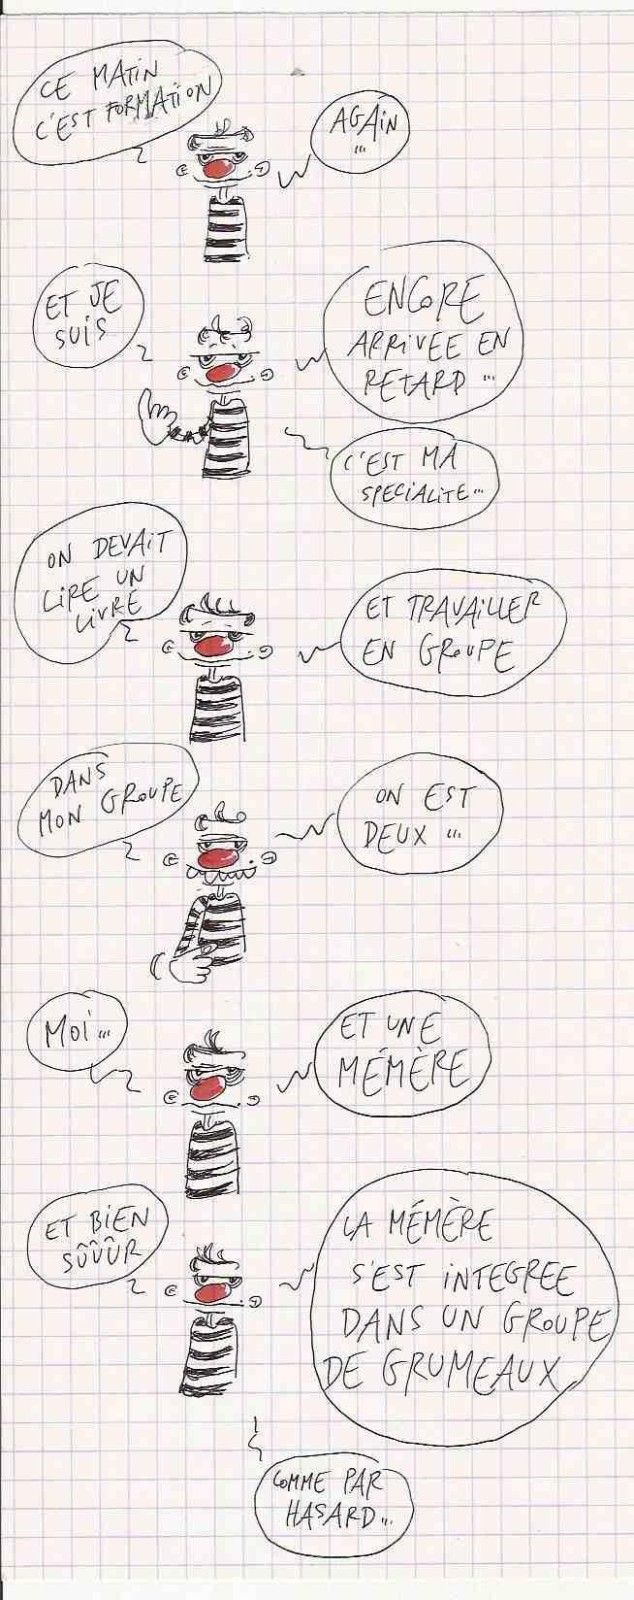 CE MATIN
C'EST FORMATION
AGAIN
...
ET JE
SUIS
ENCORE
ARRIVEE EN
RETARD ...
C'EST MA
SPECIALITE...
ON DEVAIT
LIRE UN
LIVRE
ET TRAVAILLER
EN GROUPE
DANS
MON GROUPE
ON EST
DEUX ...
MOI ...
ET UNE
MÉMÈRE
ET BIEN
SÛÛÛR
LA MÉMÈRE
S'EST INTEGREE
DANS UN GROUPE
DE GRUMEAUX
COMME PAR
HASARD...